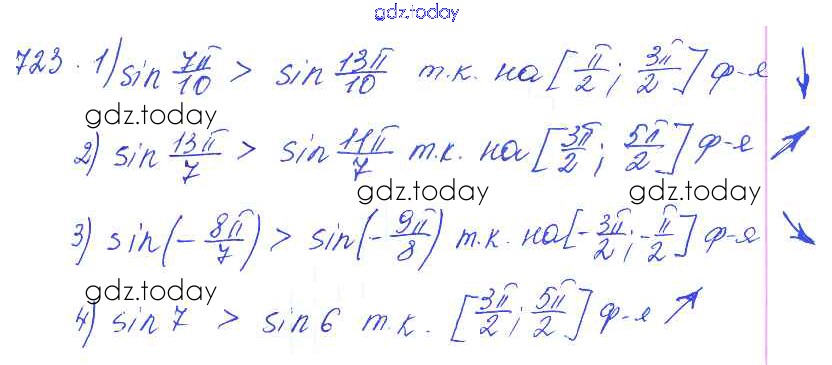 gdz.today
723. 1) sin 7π/10 > sin 13π/10 т.к. на [π/2; 3π/2] ф-я ↓
gdz.today
2) sin 13π/7 > sin 11π/7 т.к. на [3π/2; 5π/2] ф-я ↗
gdz.today gdz.today
3) sin(-8π/7) > sin(-9π/8) т.к. на [-3π/2; -π/2] ф-я ↘
gdz.today
4) sin 7 > sin 6 т.к. [3π/2; 5π/2] ф-я ↗